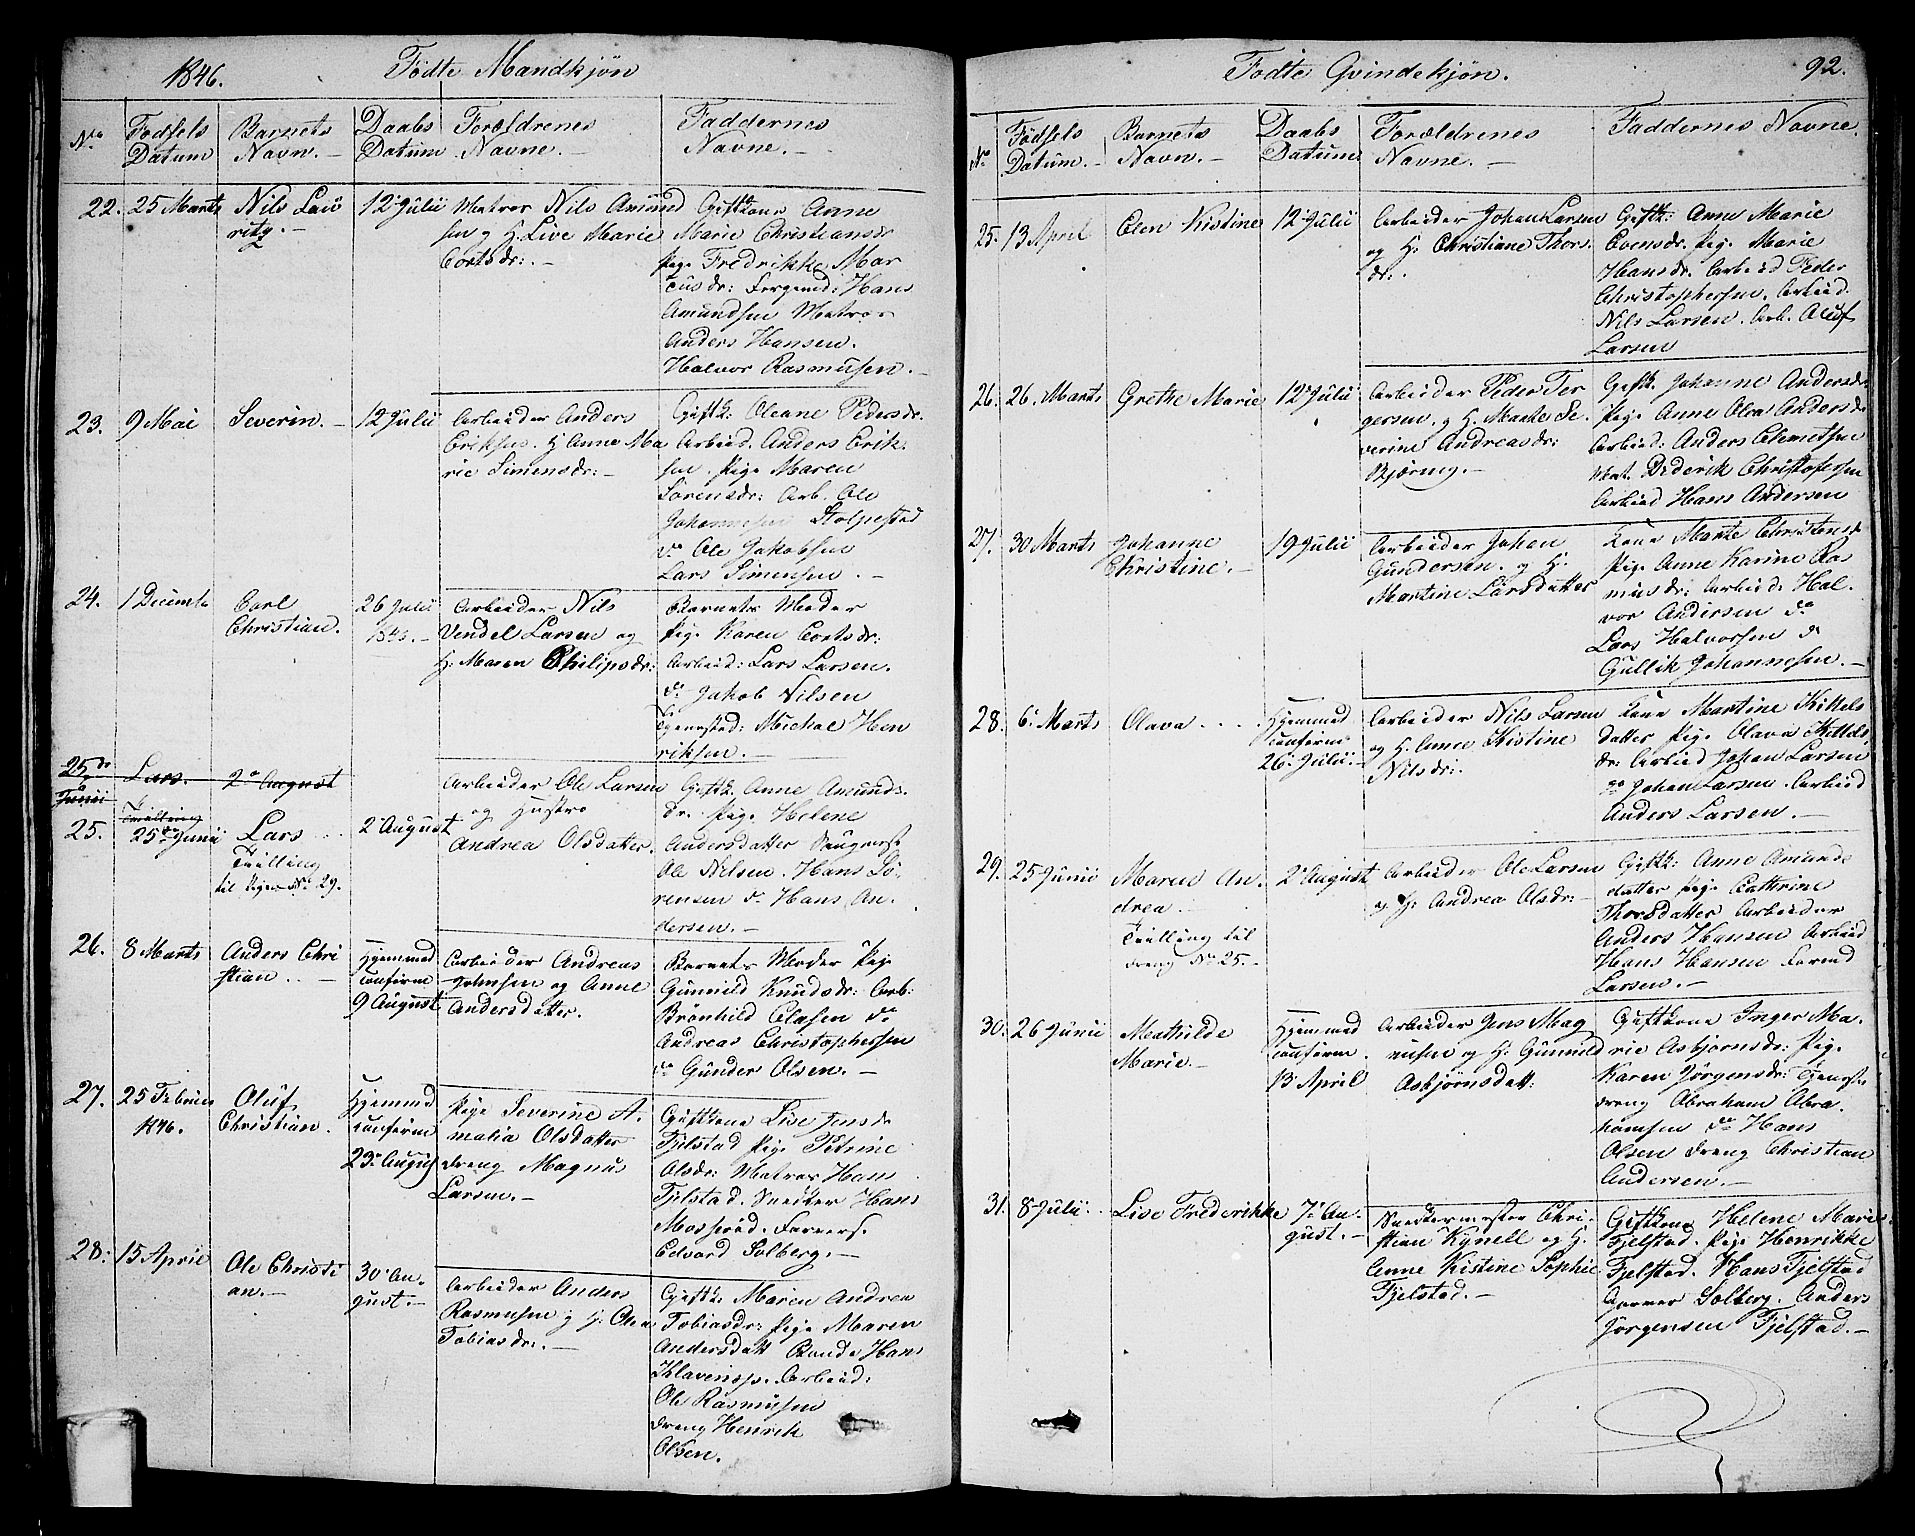 1846.
Fødte Mandkjøn
No
Fødsels Datum
Barnets Navn. -
Daabs Datum
Forældrenes Navne. -
Faddernes Navne. -
22. 25 Marts
Nils Lau
ritz. -
12 Julii
Matros Nils Amund
sen og H. Live Marie
Cortsdr: -
Giftkone Anne
Marie Christiansdr
Pige Fredrikke Mar
cusdr:
Hans
Amundsen Matros
Anders Hansen.
Halvor Rasmusen. -
23. 9 Mai
Severin. -
12 Julii
Arbeider Anders
Eriksen. H Anne Ma
rie Simensdr: -
Giftk: Oleane Pedersdr
Arbeid. Anders Erik
sen. Pige Maren
Sørensdr: Arb. Ole
Johannesen Stolpestad
do Ole Jakobsen
Lars Simensen. -
24. 1 Decemb
Carl
Christian.
26 Julii
1845. -
Arbeider Nils
Vendel Larsen og
H. Maren Philipsdr:
Barnets Moder
Pige Karen Cortsdr:
Arbeid: Lars Larsen.
do Jakob Nilsen
Michal Hen
riksen. -
25de
Junii
Lars.
2 August
Tvilling
25. 25de Junii
Lars
Tvilling
til Pigen No 29.
2 August
Arbeider Ole Larsen
og Hustro
Andrea Olsdatter.
Giftk: Anne Amunds
dr. Pige Helene
Andersdatter
Ole Nilsen. Hans Sø
rensen do Hans An
dersen. -
26. 8 Marts
Anders Chri
stian. -
Hjemmed
confirm
9 August
Arbeider Andreas
Johnsen og Anne
Andersdatter.
Barnets Moder Pige
Gunnild Knudsdr: Arb:
Brønhild Olasen do
Andreas Christophersen
do Gunder Olsen. -
27. 25 Februar
1846.
Oluf
Christian.
Hjemmed
confirm
23 August
Pige Severine A
malia Olsdatter
Dreng Magnus
Larsen. -
Giftkone Lise Jensdr
Fjelstad Pige Petrine
Olsdr: Matros Hans
Fjelstad. Snedker Hans
Edvard Solberg. -
28: 15 April
Ole Christi
an. -
30 Au
gust. -
Arbeider Anders
Rasmusen og H: Olea
Tobiasdr: -
Giftk. Maren Andrea
Tobiasdr: Pige Maren
Andersdatt Bonde Hans
Arbeid:
Ole Rasmusen
Dreng Henrik
Olsen.
Fødte Qvindekjøn.
92.
No
Fødsels Datum. -
Barnets Navn. -
Daabs Datum
Forældrenes Navne. -
Faddernes Navne.
25. 13 April
Elen Kistine
12 Julii
Arbeider Johan Larsen
og H. Christiane Thors
dr:
Giftk: Anne Marie
Evensdr. Pige Marie
Hansdr. Arbeid Peder
Christophersen. Arbeid.
Nils Larsen. Arb. Oluf
Larsen
26. 26. Marts
Grethe Marie
12 Julii
Arbeider Peder Ter
gersen. og H. Marthe Se
verine Andreasdr:
Bjørnes. -
Giftk. Johanne Andersdr
Pige Anne Olea Andersdr
Arbeid: Anders Clemetsen
Mat. Diderik Christofersen
Arbeid Hans Andersen
27. 30 Marts
Johanne
Christine. -
19 Julii
Arbeider Johan
Gundersen. og H.
Martine Larsdatter
Kone Marte Christensdr
Pige Anne Karine Ras
musdr: Arbeid. Hal
vor Andersen do
Lars Halvorsen do
Gullik Johannesen. -
28. 6 Marts
Olava
Hjemmed
confirm
26 Julii. -
Arbeider Nils Larsen
og H. Anne Kistine
Nilsdr:
Kone Martine Kittels
datter Pige Olava Kittels
dr: Arbeid Johan Larsen
do Johan Larsen. Arbeid
Anders Larsen. -
29. 25 Junii
Maren An
drea
Tvilling til
Dreng No 25. -
2 August
Arbeider Ole Larsen
og H: Andrea Olsdr: -
Giftk: Anne Amunds
datter Pige Cathrine
Thorsdatter Arbeider
Anders Hansen Arbeid
Hans Hansen
Larsen. -
30. 26 Junii
Mathilde
Marie. -
Hjemmed
confirm.
13 April
Arbeider Jens Mag
nusen og H. Gunnild
Asbjørnsdatt:
Giftkone Inger Ma
rie Asbjørnsdr: Pige
Karen Jørgensdr: Tjeneste
dreng Abraham Abra
hamsen do Hans
Olsen Dreng Christian
Andersen. -
31. 8 Julii
Lise Frederikke
7 Au
gust. -
Snedkermester Chri
stian Kynell og H.
Anne Kistine Sophie
Fjelstad. -
Giftkone Helene Marie
Fjelstad. Pige Henrikke
Fjelstad. Hans Fjelstad
Solberg. Anders
Jørgensen Fjelstad. -